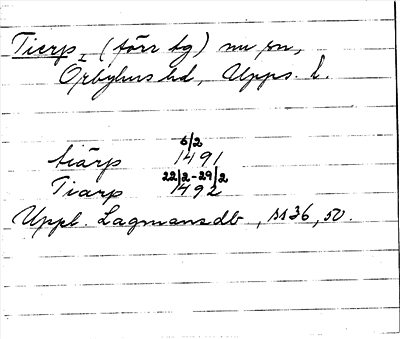 Tierp, (förr tg) nu sn,
Örbyhus hd, Upps. l.
tiärp 6/2 1491
Tiarp 22/2-29/2 1492
Uppl. Lagmansdb, ss 36, 50.